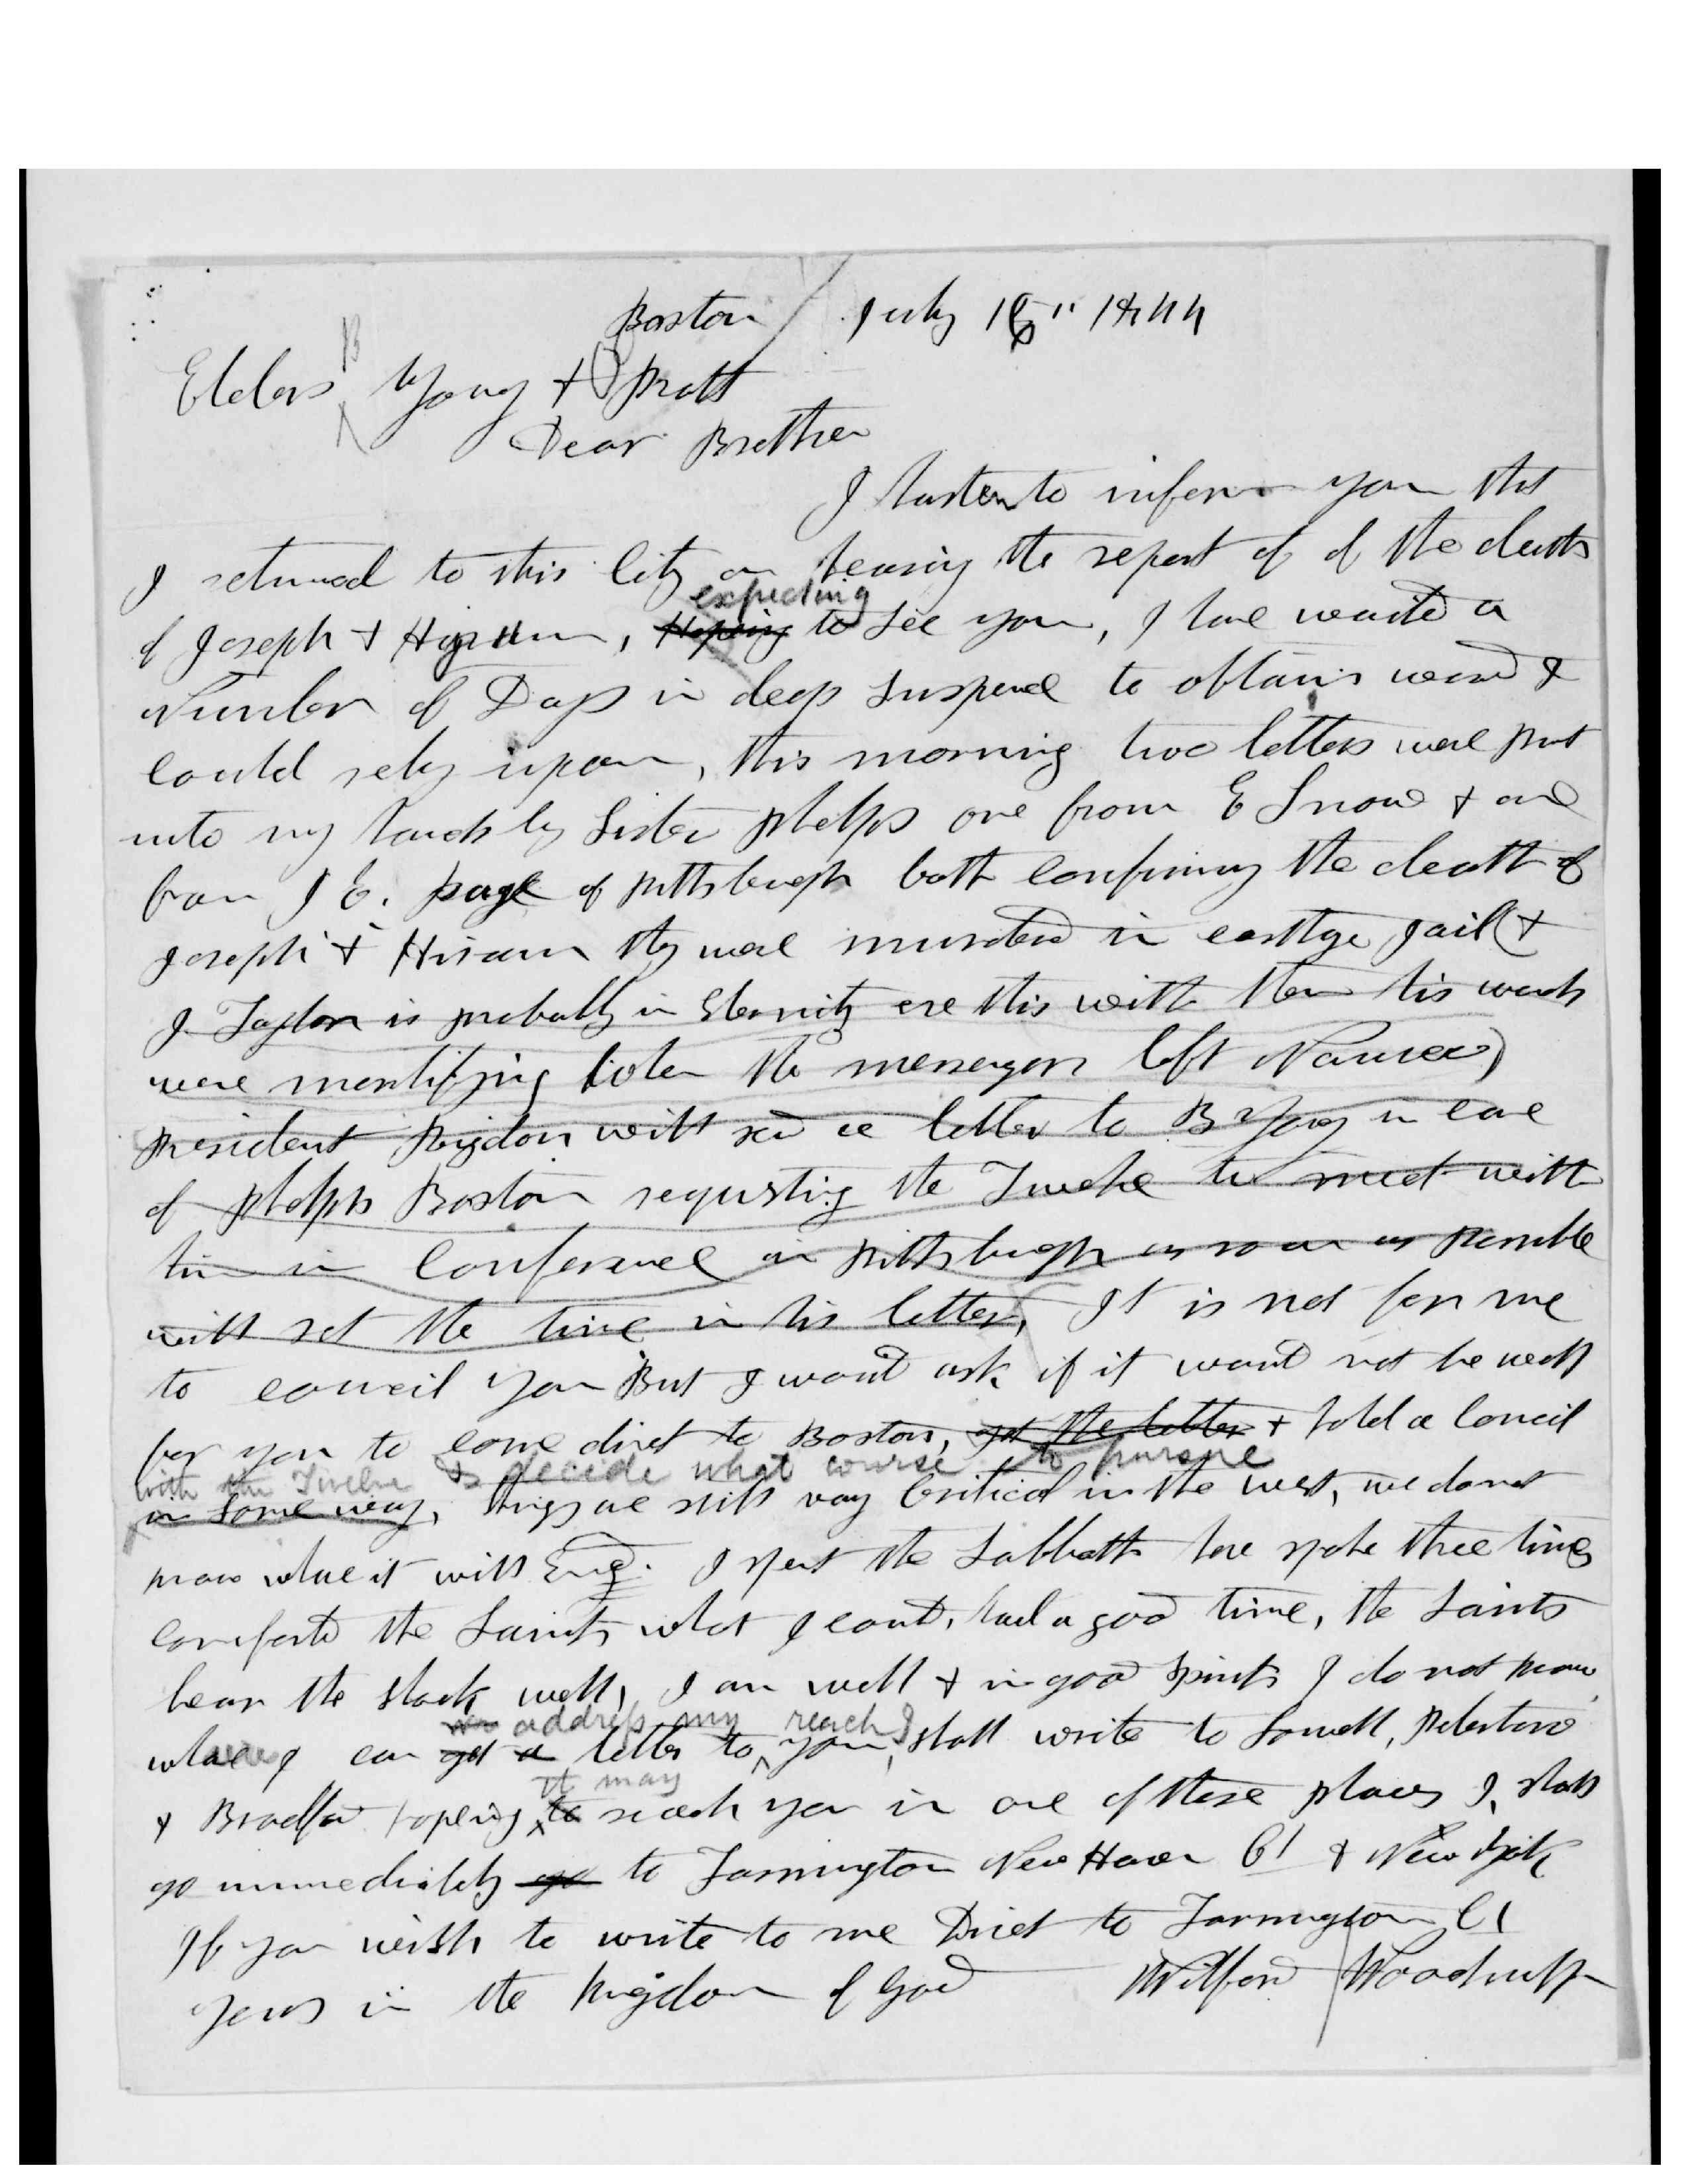 Boston July 16" 1844
Elders B Young & O Pratt
Dear Brethren
I hasten to inform you that
I returned to this City on hearing the report of of the death
of Joseph & Hyrum, Hoping expecting to see you, I have waited a
Number of Days in deep suspence to obtain word I
could rely upon, this morning two letters were put
into my hands by Sister phelps one from E Snow & one
from J E. page of pittsburgh both confirming the death of
Joseph & Hiram they were murdered in carthge jail (&
J. Taylor is probably in Eternity ere this with them his wounds
were mortifying when the messenger left Nauvoo)
president Rigdon will send a letter to B Young in care
of phelps Boston requesting the Twelve to meet with
him in Conference in pittsburgh as soon as possible
will set the time in his letter, It is not for me
to council you But I would ask if it would not be well
for you to come direct to Boston, get the letter & hold a Concil
with the Twelve & decide what course to pursue
in some way, things are still vary Critical in the west, we do not
know whare it will End. I spent the Sabbath here spoke three times
comforted the Saints what I could, had a good time, the Saints
bear the shock well, I am well & in good spirits I do not know
whare I can get a address my letter to reach you, I shall write to Lowell, peterboro
& Bradford hoping to it may reach you in one of these places I, shall
go immediately go to Farmington New Haven Ct & New York
If you wish to write to me Direct to Farmington Ct
yours in the kingdom of God Wilford Woodruff